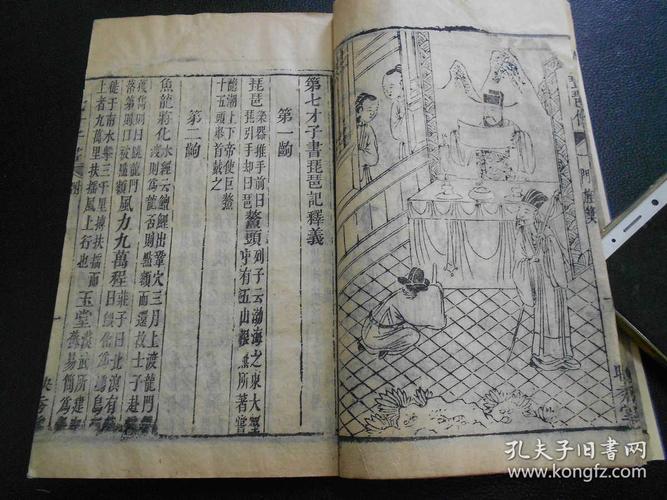 第七才子書琵琶記釋義
第一齣
琵琶
樂器推手前曰
琵引手却曰琶
鰲頭
列子云渤海之東大壑
中有五山根無所著嘗
隨潮上下帝使巨鰲
十五頭舉首戴之
第二齣
魚龍將化
水經云鮑鯉出鞏穴三月上渡龍門
渡則爲龍否則點額而還故士子赴
獲雋則曰跳龍門
落第則曰被點額
風力九萬程
莊子曰北溟有
日綴化爲鵬鳥
徙于南水擊三千里摶扶搖而
上者九萬里扶搖風上行也
玉堂
漢武所建
孔夫子旧书网
www.kongfz.com